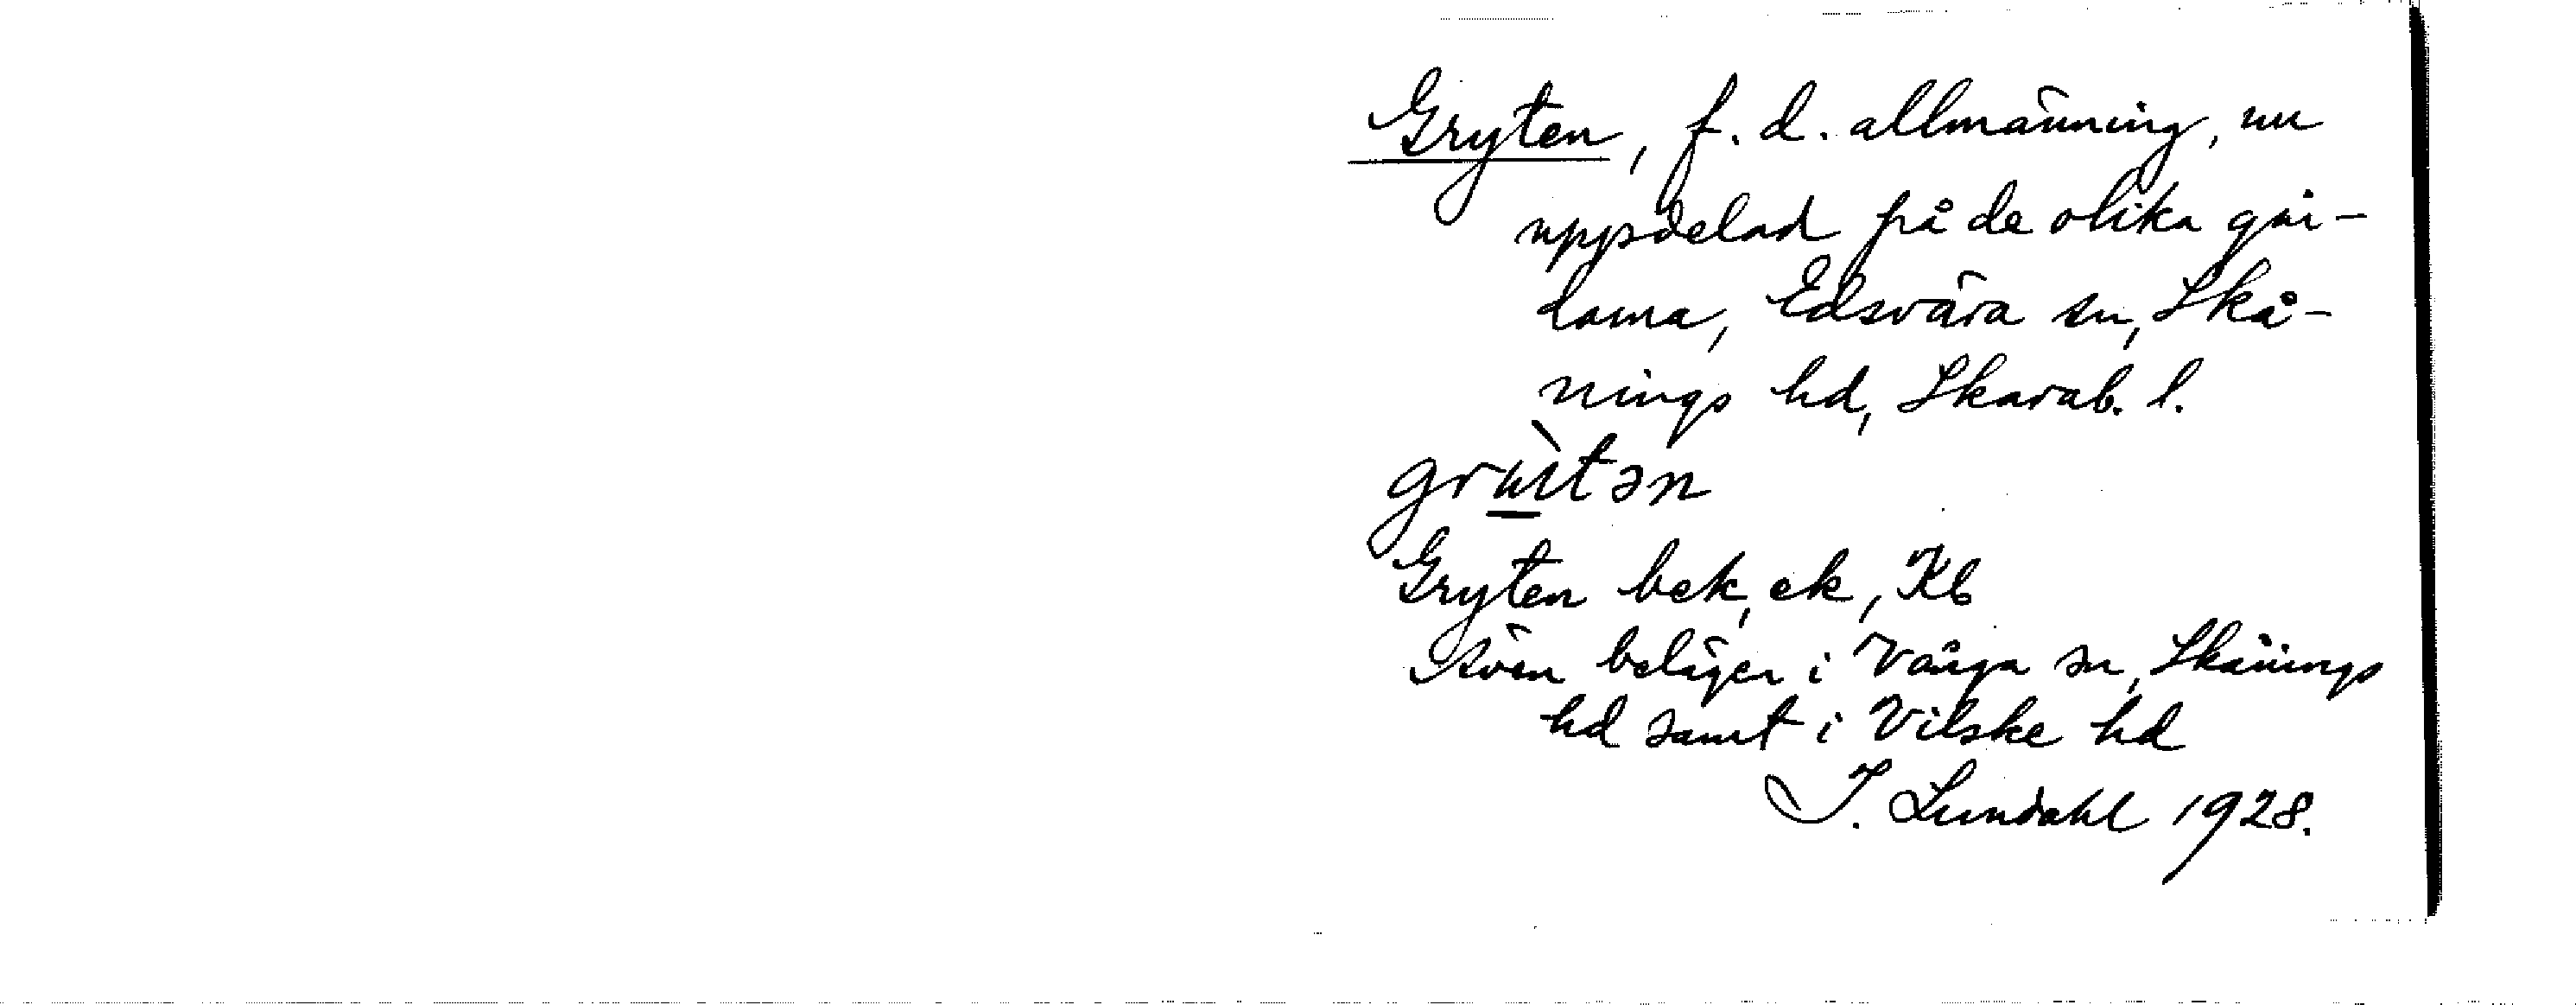 Gryten, f. d. allmänning, nu
uppdelad på de olika går-
darna, Edsvära sn, Skå-
nings hd, Skarab. l.
Gryten bek, ek, Kb
Även belägen i Vånga sn, Skånings
hd samt i Vilske hd
I. Lundahl 1928.